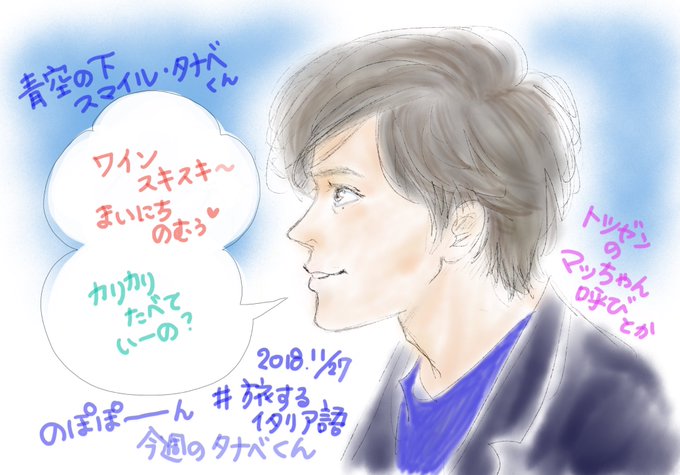 青空の下
スマイル・タナベ
くん
ワイン
スキスキ〜
まいにち
のむう♥
カリカリ
たべて
いーの?
トツゼン
の
マッちゃん
呼び
とか
2018.11/27
#旅する
イタリア語
のぽぽーーん
今週のタナベくん